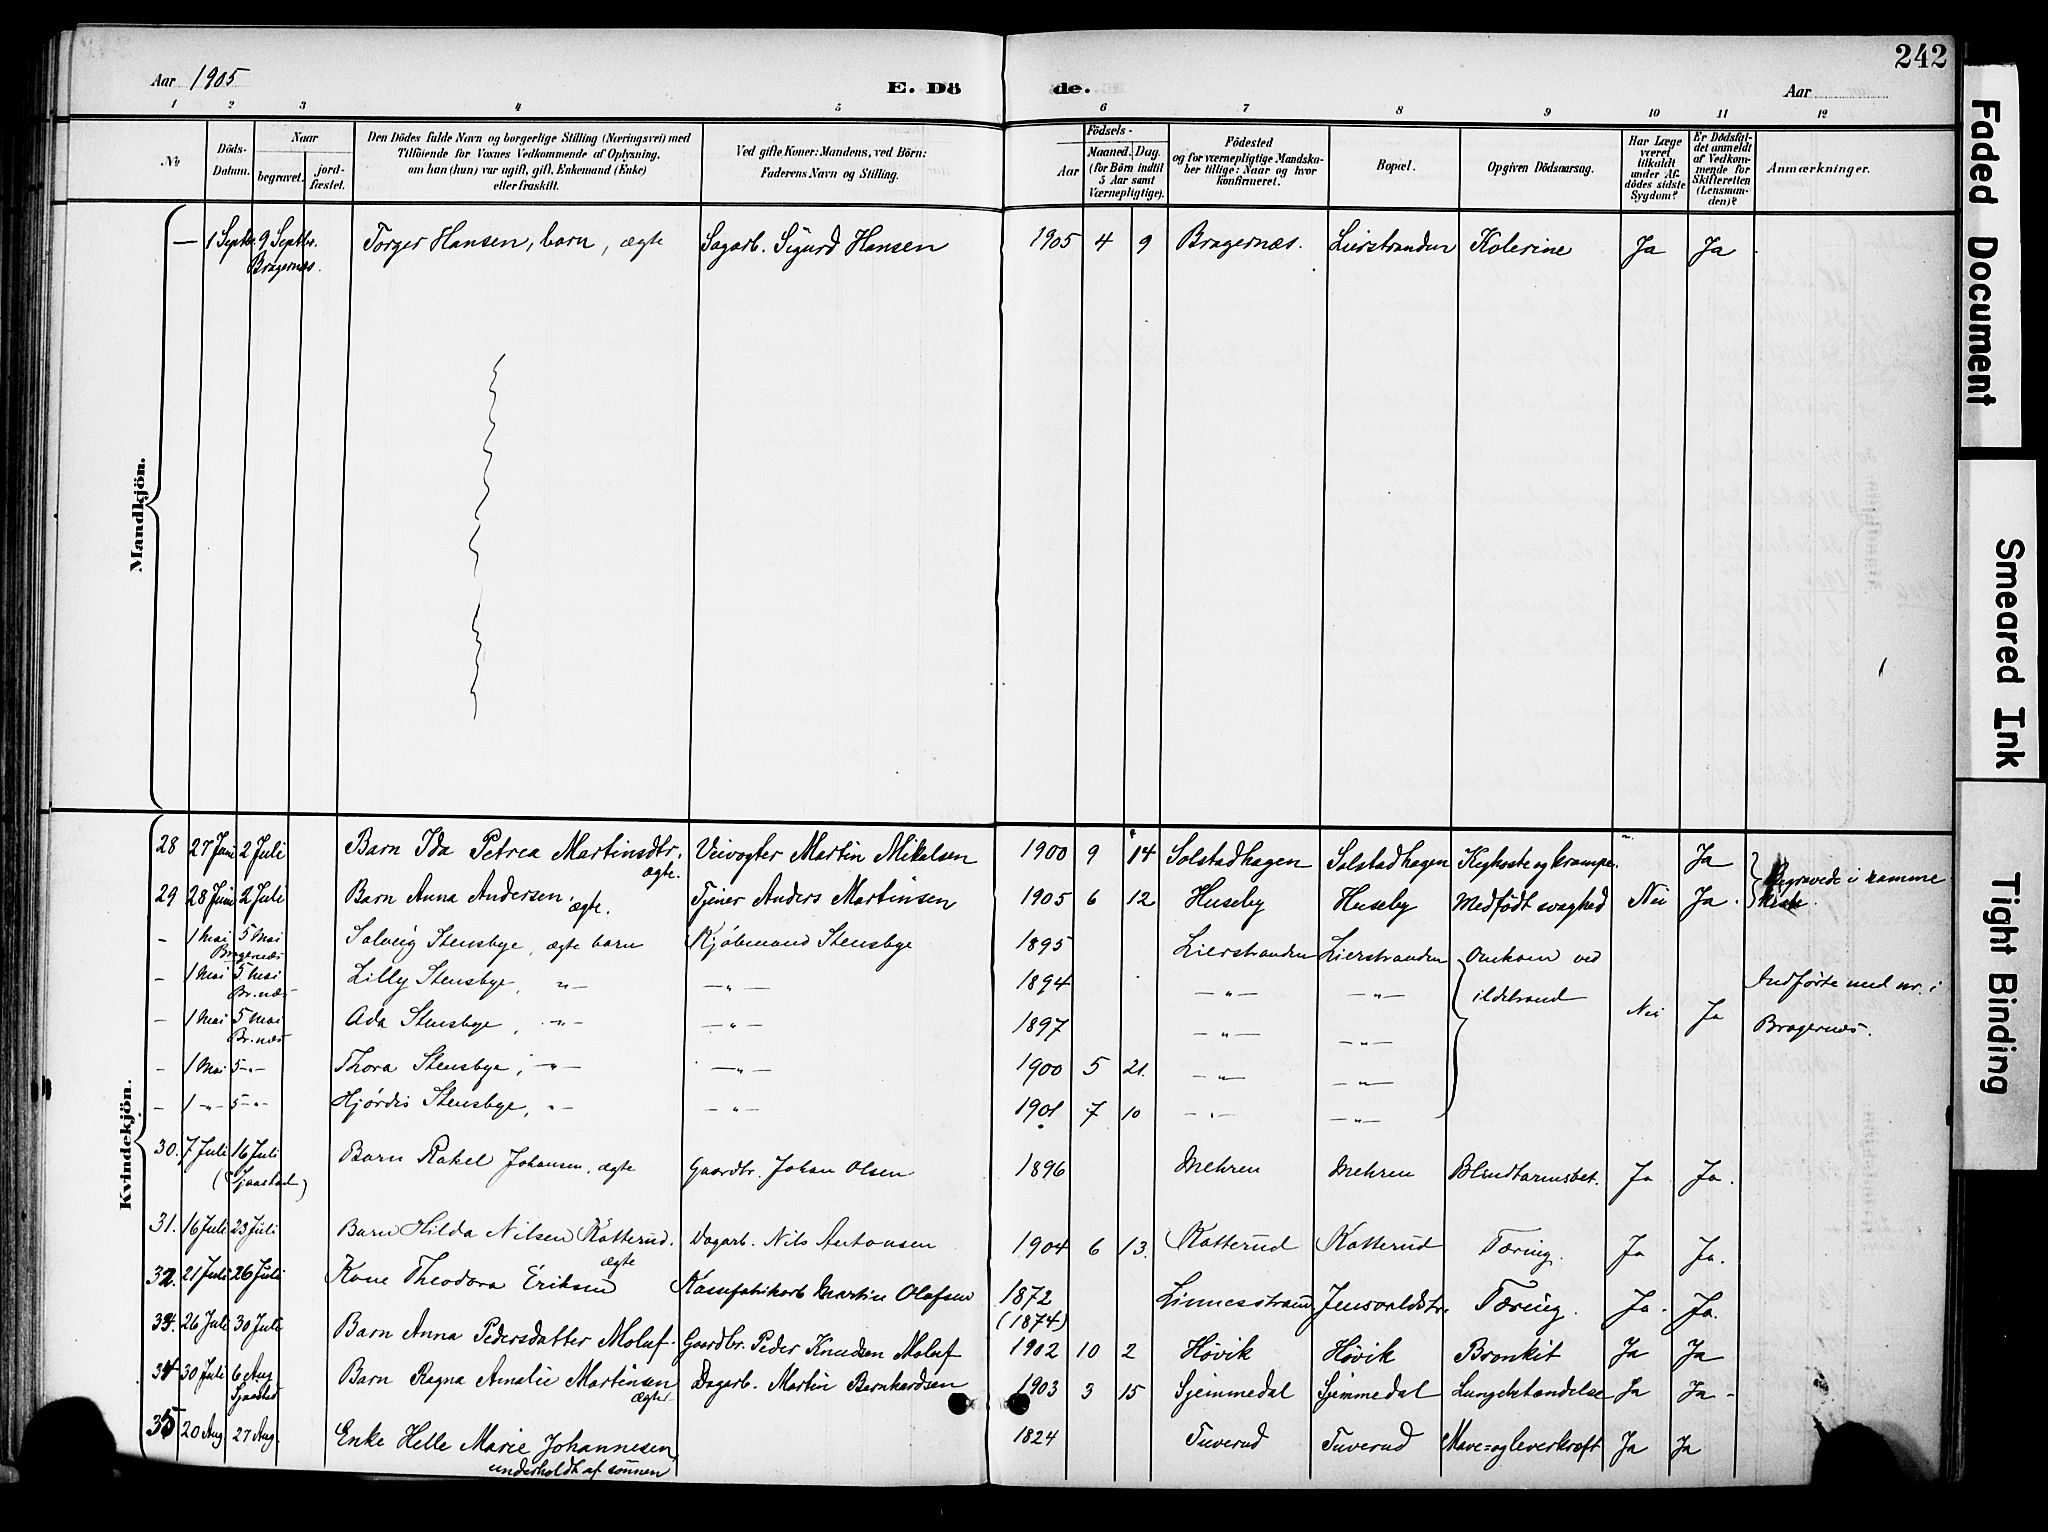 Aar 1905
E. Dö de.
Aar
242
1 2 3 4 5 6 7 8 9 10 11 12
No
Döds-
Datum.
Naar
begravet.
jord-
fæstet.
Den Dödes fulde Navn og borgerlige Stilling (Næringsvei) med
Tilföiende for Voxnes Vedkommende af Oplysning,
om han (hun) var ugift, gift, Enkemand (Enke)
eller fraskilt.
Ved gifte Koner: Mandens, ved Börn:
Faderens Navn og Stilling.
Födsels-
Aar
Maaned. Dag.
(for Börn indtil
5 Aar samt
Værnepligtige).
Födested
og for værnepligtige Mandska-
ber tillige: Naar og hvor
konfirmeret.
Bopæl.
Opgiven Dödsaarsag.
Har Læge
været
tilkaldt
under Af-
dödes sidste
Sygdom?
Er Dödsfal-
det anmeldt
af Vedkom-
mende for
Skifteretten
(Lensman-
den)?
Anmærkninger.
Mandkjön.
— 1 Septbr. 9 Septbr. Torger Hansen, barn, ægte Sagarb. Sigurd Hansen 1905 4 9 Bragernæs. Lierstranden Kolerine Ja Ja
Bragernæs.
Kvindekjön.
28 27 Juni 2 Juli Barn Ida Petrea Martinsdtr. Veivogter Martin Mikalsen 1900 9 14 Solstadhagen Solstadhagen Kighoste og krampe. Ja
ægte.
Begravede i samme
29 28 Juni 2 Juli Barn Anna Andersen, ægte. Tjener Anders Martinsen 1905 6 12 Huseby Huseby Medfödt svaghed Nei Ja.
kiste.
- 1 Mai 5 Mai Solveig Stensbye, ægte barn Kjöbmand Stensbye 1895 Lierstranden Lierstranden Omkom ved
Bragernæs
- 1 Mai 5 Mai Lilly Stensbye, —"— —"— 1894 —"— —"— ildebrand Indförte med nr. i
Br.næs
- 1 Mai 5 Mai Ada Stensbye, —"— —"— 1897 —"— —"— Nei Ja Bragernæs.
Br.næs
- 1 Mai 5 —"— Thora Stensbye, —"— —"— 1900 5 21. —"— —"—
- 1 —"— 5 —"— Hjördis Stensbye, —"— —"— 1901 7 10 —"— —"—
30. 7 Juli 16 Juli Barn Rakel Johansen, ægte Gaardbr. Johan Olsen 1896 Mehren Mehren Blindtarmsbet. Ja Ja.
(Sjaastad)
31. 16 Juli 23 Juli Barn Hilda Nilsen Katterud. Dagarb. Nils Antonsen 1904 6 13. Katterud Katterud Tæring. Ja Ja.
ægte
32. 21 Juli 26 Juli Kone Theodora Eriksen Kassefabrikarb Martin Olafsen 1872 Linnesstrand Tæring. Ja. Ja.
(1874)
33. 26 Juli 30 Juli Barn Anna Pedersdatter Gaardbr. Peder Knudsen 1902 10 2 Hövik Hövik Bronkit Ja Ja
34 30 Juli 6 Aug Barn Ragna Amalie Martinsen Dagarb. Martin Bernhardsen 1903 3 15 Sjimmedal Sjimmedal Lungebetændelse Ja Ja
Sjaastad
ægte
35 20 Aug 27 Aug. Enke Helle Marie Johannesen 1824 Tuverud Tuverud Mave- og leverkræft Ja Ja
underholdt af sönnen
Faded Document
Smeared Ink
Tight Binding